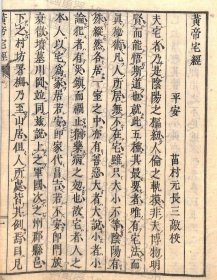 黄帝宅經
平安 村元長三敲校
夫宅者乃是陰陽之樞紐人倫之軌模非夫博物明
賢而能悟斯道也就此五種其最要者唯有宅法而
真秘術凡人所居無不在宅雖只大小不等陰陽有
殊縱然客居一室之中亦有善惡大者大說小者小
論犯者有災鎮而禍止猶藥病之效也故宅者人之
本人以宅爲家居若安即家代昌吉若不安即門族
衰微墳墓川岡並同茲說上之軍國次及州郡縣邑
下之村坊署柵乃至山居但人所處皆其例焉目見
黄帝宅經